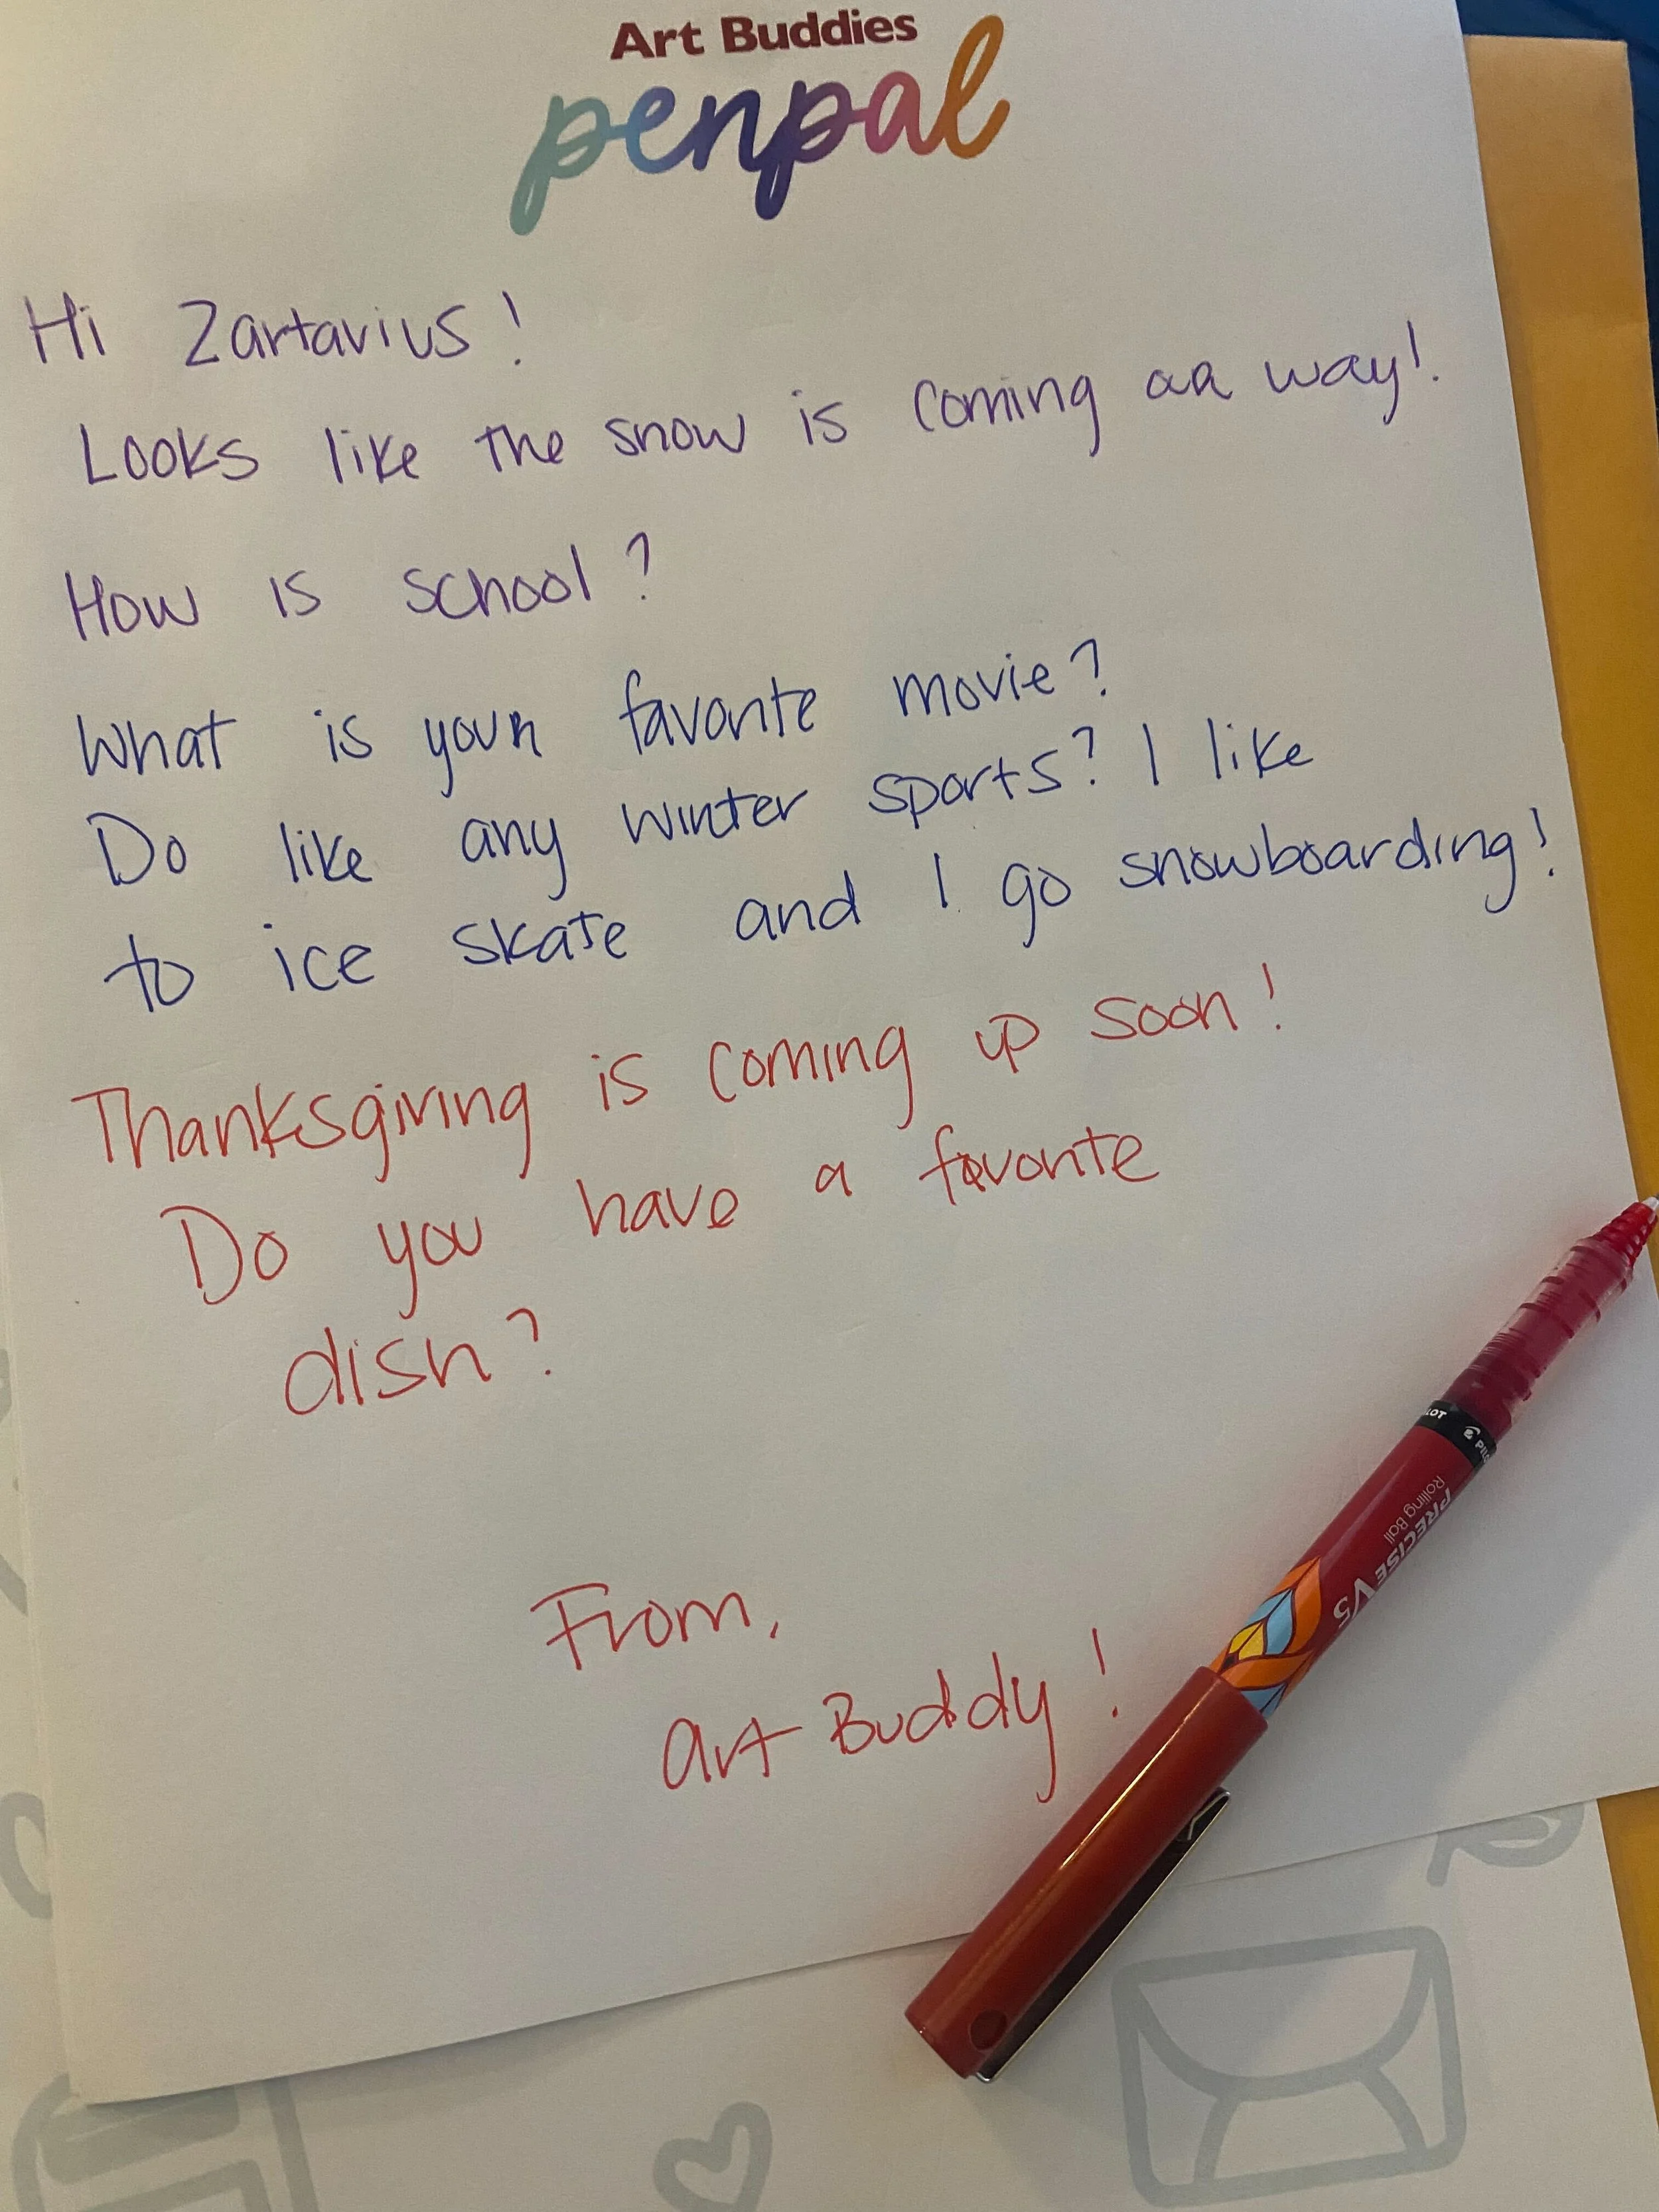 Art Buddies
penpal
Hi Zartavius!
Looks like the snow is coming way!
How is school?
What is your favorite movie?
Do like any winter sports? I like
to ice skate and I go snowboarding!
Thanksgiving is coming up soon!
Do you have a favorite
dish?
From,
Art Buddy!
PILOT
PRECISE V5
Rolling Ball